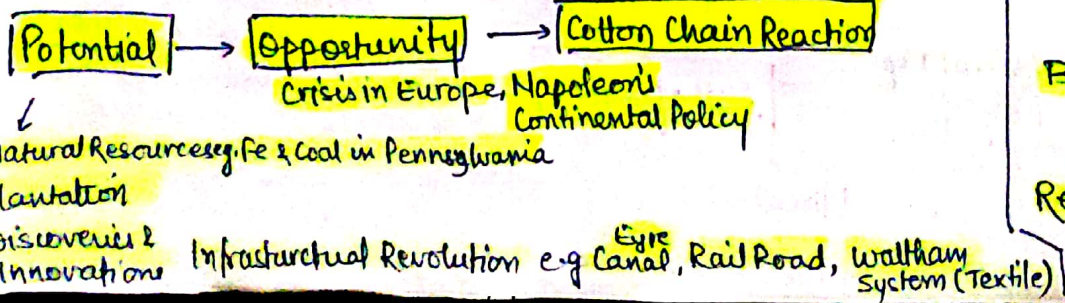 Potential → Opportunity → Cotton Chain Reaction
Crisis in Europe, Napoleon's
Continental Policy
atural Resources eg. Fe & Coal in Pennsylvania
lantation
iscoveries &
Innovations
Infrasturctual Revolution e.g Eyre Canal, Rail Road, Waltham
System (Textile)